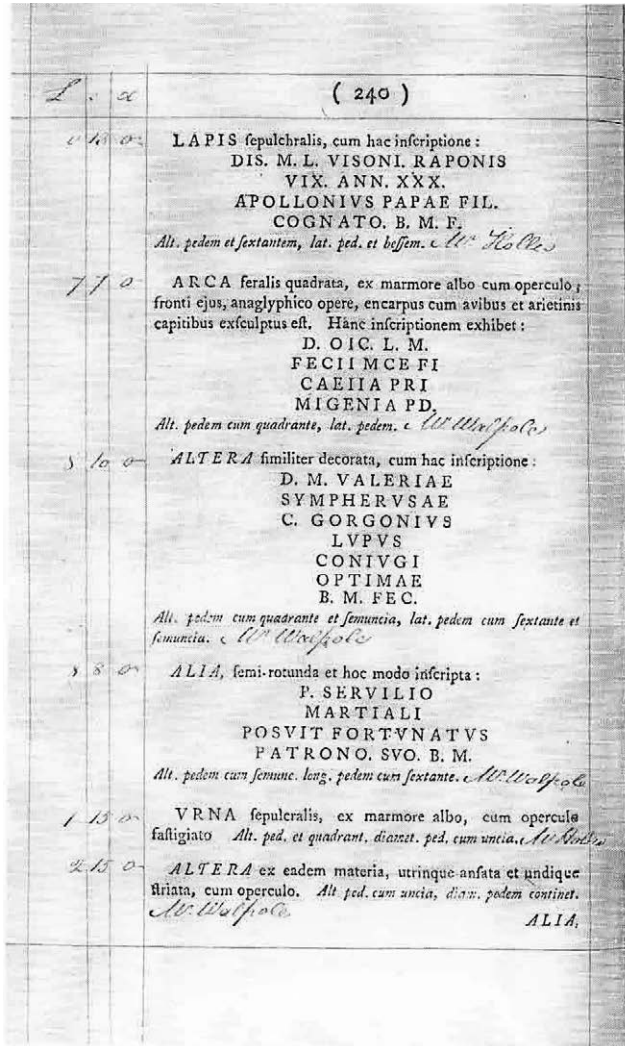 L . d
( 240 )
0 18 0 LAPIS ſepulchralis, cum hac inſcriptione :
DIS. M. L. VISONI. RAPONIS
VIX. ANN. XXX.
APOLLONIVS PAPAE FIL.
COGNATO. B. M. F.
Alt. pedem et ſextantem, lat. ped. et beſſem. Mr Hollis
7 7 0 ARCA feralis quadrata, ex marmore albo cum operculo ;
fronti ejus, anaglyphico opere, encarpus cum avibus et arietinis
capitibus exſculptus eſt. Hanc inſcriptionem exhibet :
D. OIC. L. M.
FECII MCE FI
CAEIIA PRI
MIGENIA PD.
Alt. pedem cum quadrante, lat. pedem. Mr Walpole
5 10 0 ALTERA ſimiliter decorata, cum hac inſcriptione :
D. M. VALERIAE
SYMPHERVSAE
C. GORGONIVS
LVPVS
CONIVGI
OPTIMAE
B. M. FEC.
Alt. pedem cum quadrante et ſemuncia, lat. pedem cum ſextante et
ſemuncia. Mr Walpole
8 0 ALIA, ſemi-rotunda et hoc modo inſcripta :
P. SERVILIO
MARTIALI
POSVIT FORTVNATVS
PATRONO. SVO. B. M.
Alt. pedem cum ſemunc. long. pedem cum ſextante. Mr Walpole
1 15 0 VRNA ſepulcralis, ex marmore albo, cum operculo
faſtigiato Alt. ped. et quadrant. diamet. ped. cum uncia. Mr Hollis
2 15 0 ALTERA ex eadem materia, utrinque anſata et undique
ſtriata, cum operculo. Alt ped. cum uncia, diam. pedem continet.
Mr Walpole
ALIA,